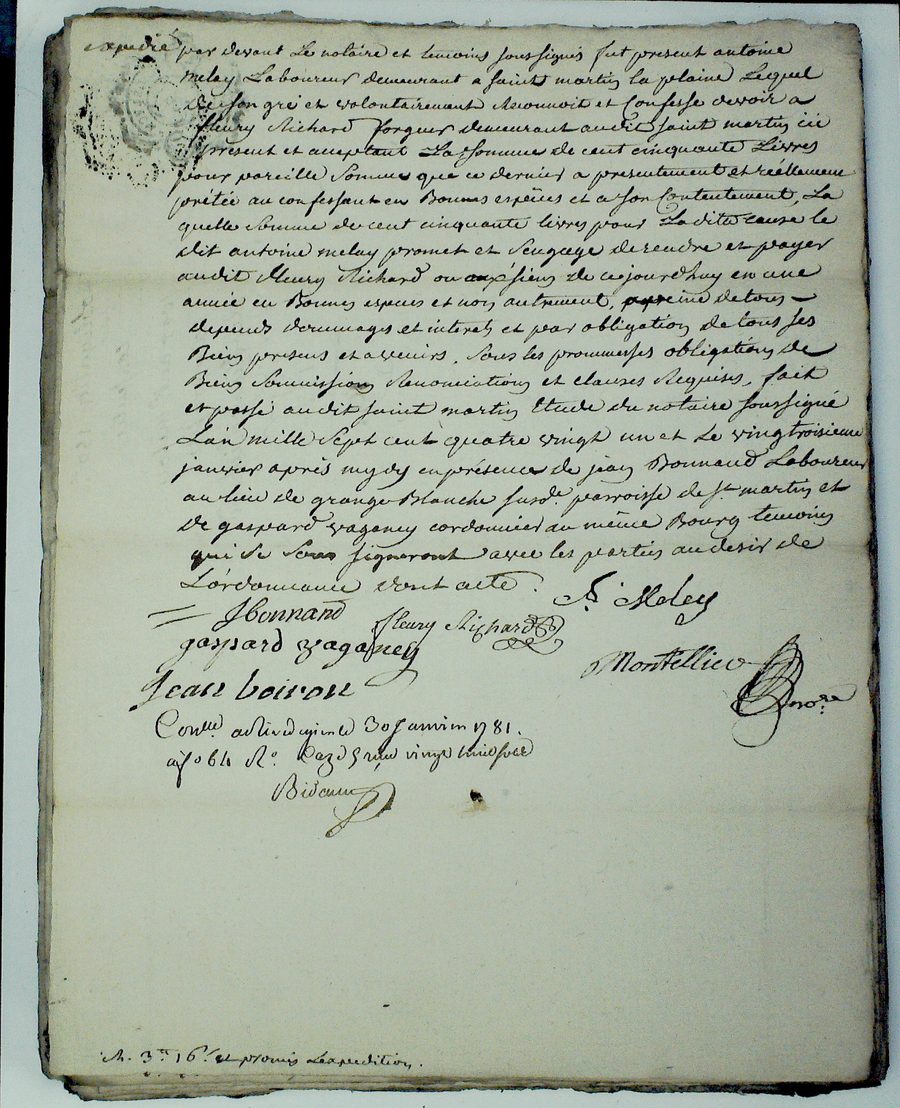 expedié
par devant Le notaire et temoins soussignés fut present antoine
melay Laboureur demeurant a saint martin la plaine Lequel
de son gré et volontairement Reconnoit et Confesse devoir a
fleury Richard forgeur demeurant audit saint martin ici
present et acceptant La somme de cent cinquante Livres
pour pareille somme que ce dernier a presentement et réellement
prêtée au confessant en Bonnes espèces et a son Contentement, La
quelle somme de cent cinquante livres pour La dite cause le
dit antoine melay promet et s'engage de rendre et payer
audit fleury Richard ou aux siens de cejourdhuy en une
année en Bonnes especes et non autrement, a peine de tous
depends dommages et interets et par obligation de tous ses
Biens presens et avenirs, sous les prommesses obligations de
Biens soumissions Renonciations et clauses Requises, fait
et passé audit saint martin Etude du notaire soussigné
L'an mille sept cent quatre vingt un et Le vingtroisieme
janvier après mydy en présence de jean Bonnand Laboureur
au lieu de grange Blanche susd.e parroisse de st martin et
de gaspard vaganey cordonnier au même Bourg temoins
qui se sous signeront avec les parties au desir de
L'ordonnance dont acte.
A. Meley
Jbonnand
fleury Richard
gaspard vaganey
Montellier
nore
Jean boiron
Conlle a Rivedegier le 30 Janvier 1781.
fo 64 Ro. vingt
3lt 16s et promis L'expedition.